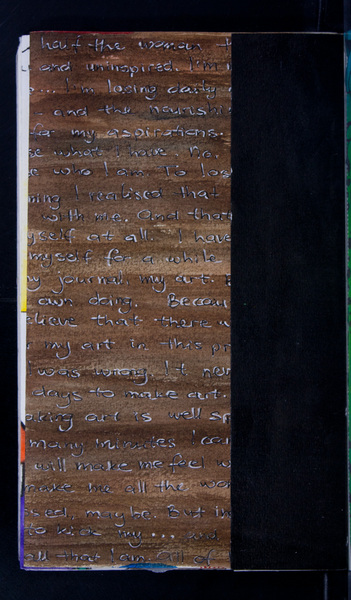 half the woman
and uninspired. I'm
... I'm losing daily
and the nourish
for my aspirations.
what I have, no.
who I am. To los
ning I realised that
with me. And that
yself at all. I have
myself for a while
my journal, my art.
own doing. Becau
elieve that there w
my art in this pr
I was wrong. It
days to make art.
aking art is well sp
many minutes I can
will make me feel w
make me all the wo
sed, maybe. But in
to kick my... and
all that I am. All of